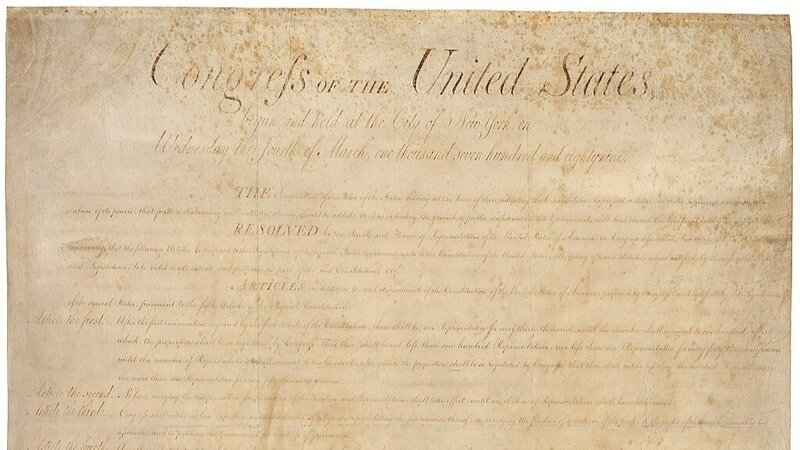 Congress OF THE United States,
begun and held at the City of New York, on
Wednesday the fourth of March, one thousand seven hundred and eighty nine.
THE Conventions of a number of the States, having at the time of their adopting the Constitution, expressed a desire,
RESOLVED by the Senate and House of Representatives of the United States of America, in Congress assembled,
that the following Articles be proposed to the Legislatures of the several States,
said Legislatures, to be valid to all intents and purposes, as part of the said Constitution; viz.
ARTICLES in addition to, and Amendment of the Constitution of the United States of America, proposed by Congress,
of the several States, pursuant to the fifth Article of the Original Constitution.
Article the first. After the first enumeration required by the first Article of the Constitution, there shall be one Representative for every thirty thousand, until the number shall amount to one hundred, after
which, the proportion shall be so regulated by Congress, that there shall be not less than one hundred Representatives, nor less than one Representative for every forty thousand persons,
until the number of Representatives shall amount to two hundred, after which the proportion shall be so regulated by Congress, that there shall not be less than two hundred Representatives,
nor more than one Representative for every fifty thousand persons.
Article the second. No law, varying the compensation for the services of the Senators and Representatives, shall take effect, until an election of Representatives shall have intervened.
Article the third. Congress shall make no law respecting an establishment of religion, or prohibiting the free exercise thereof; or abridging the freedom of speech, or of the press; or the right of the people peaceably to
assemble, and to petition the Government for a redress of grievances.
Article the fourth.